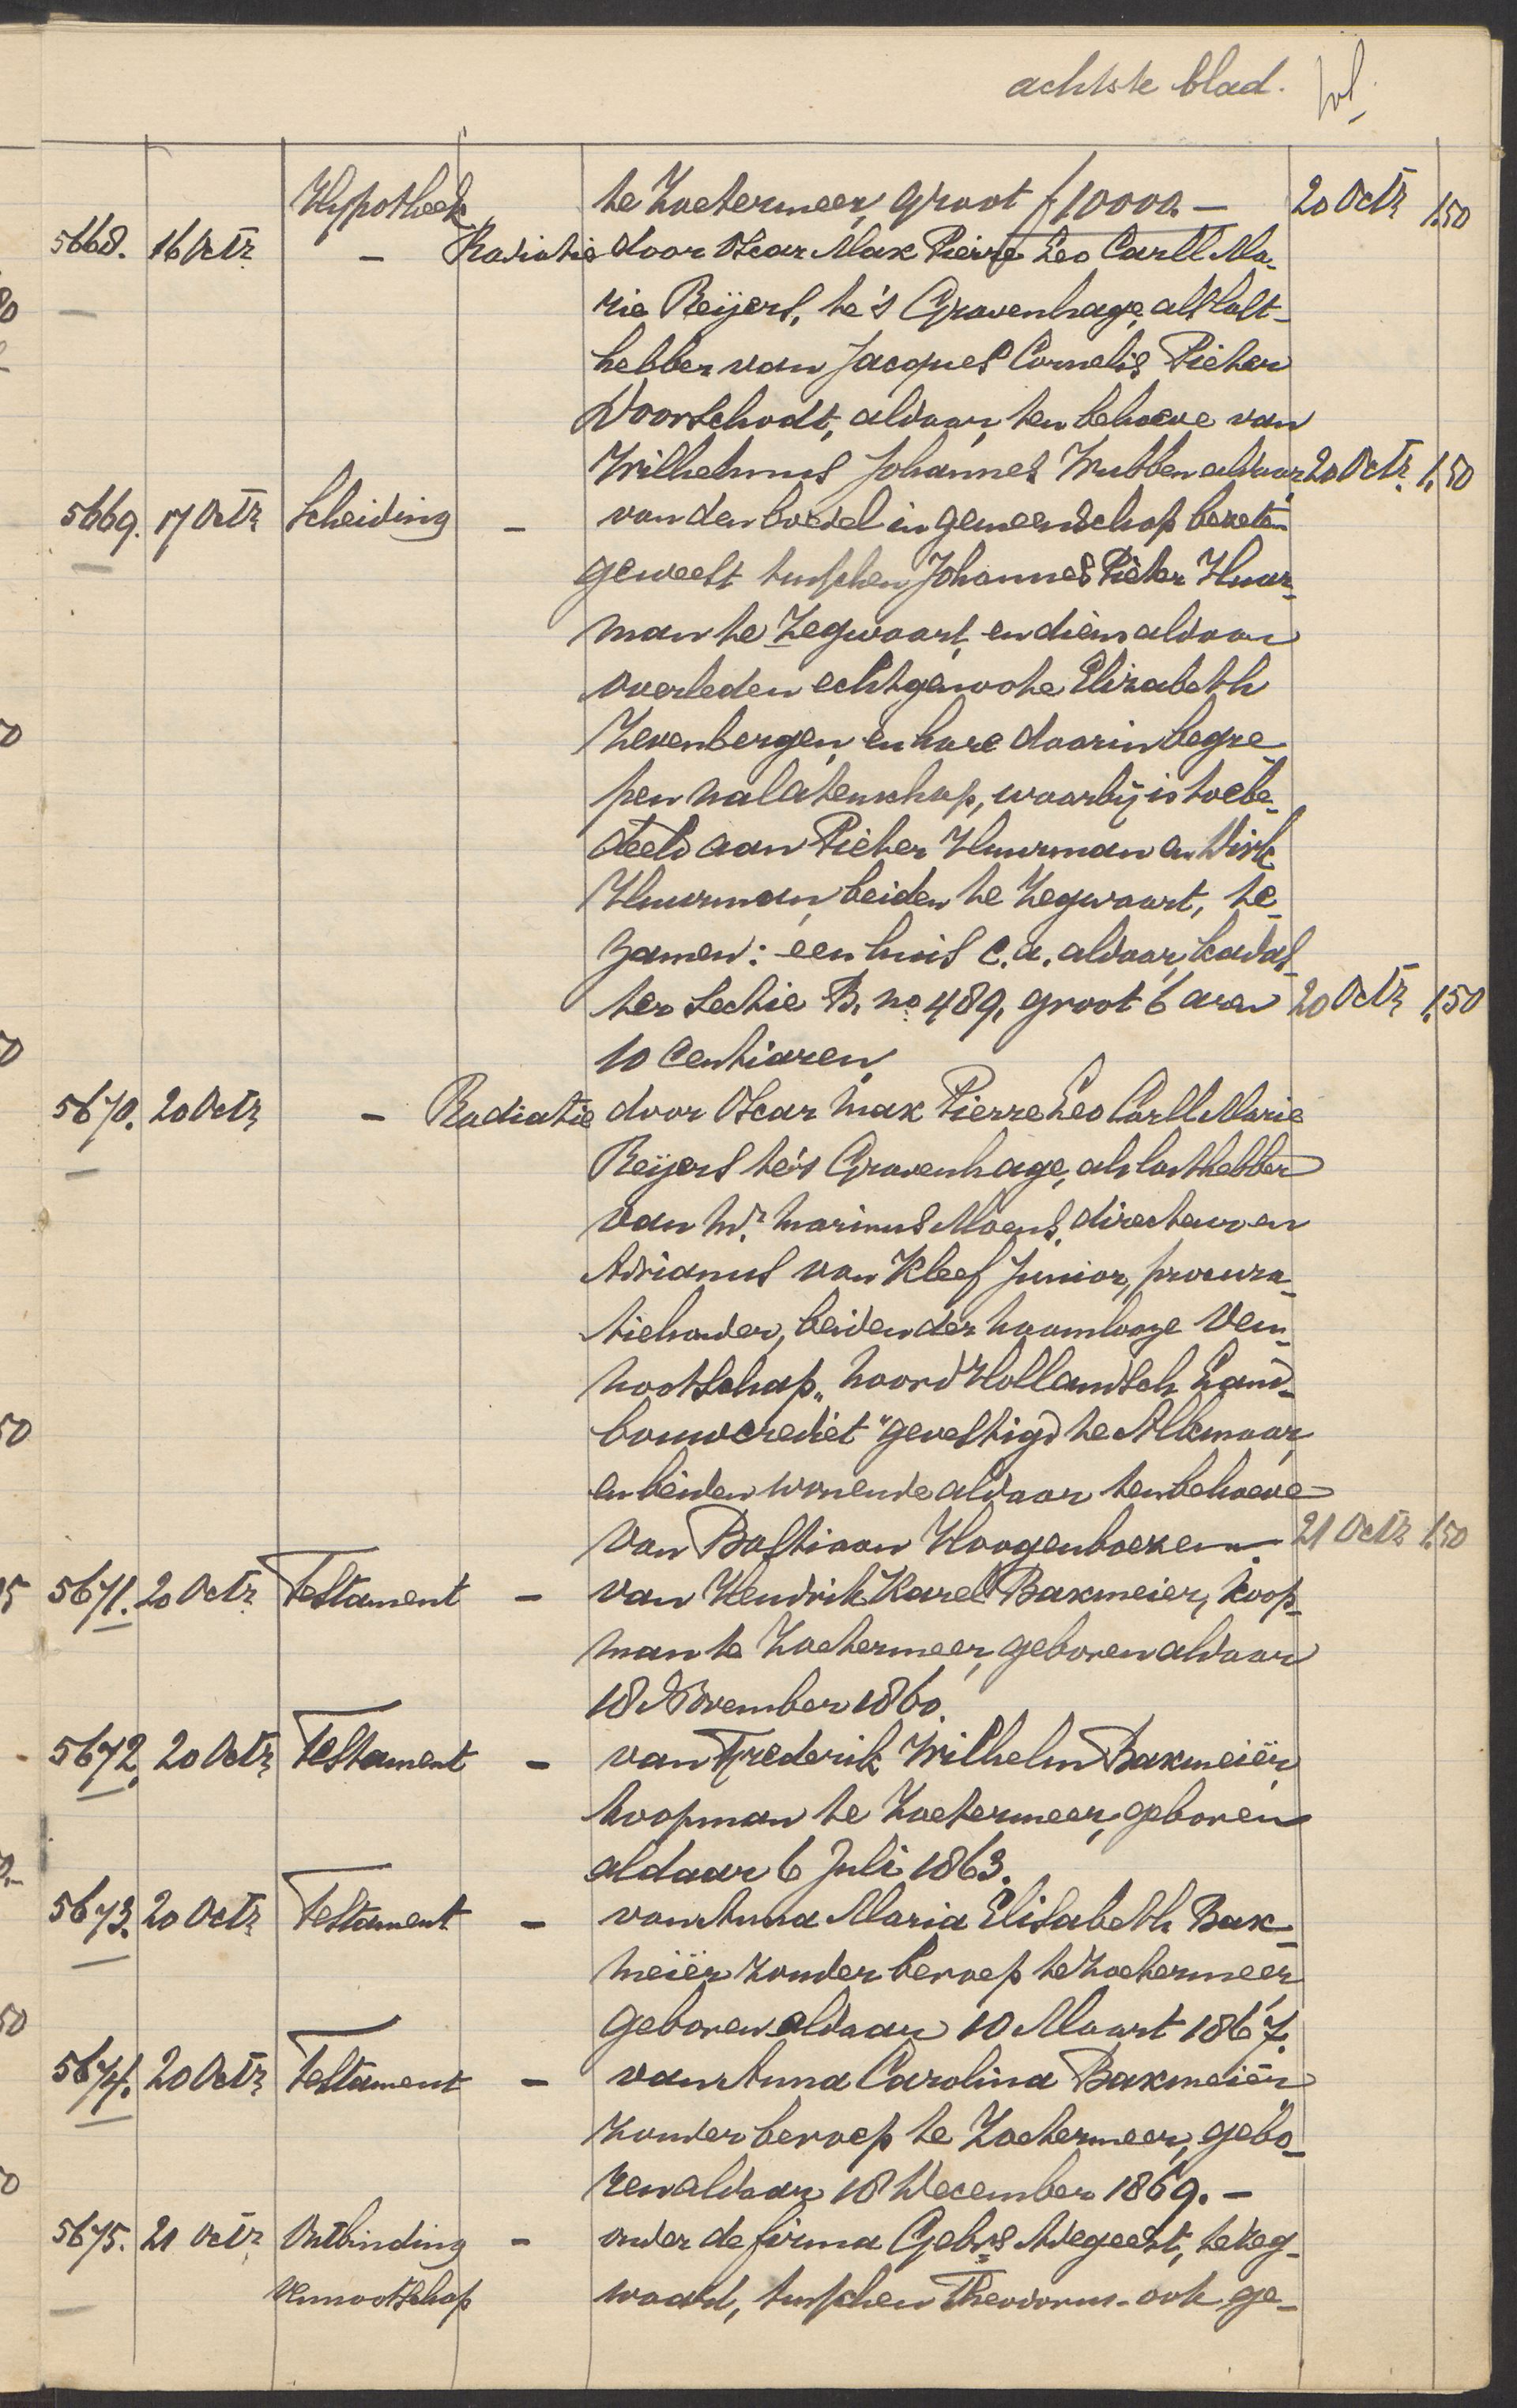 achtste blad.
Hypotheek te Zoetermeer, groot f 10000.- 20 Octr 1.50
5668. 16 Octr - Radiatie door Oscar Max Pierre Leo Carll Ma-
rie Reijers, te 's Gravenhage, als last-
hebber van Jacques Cornelis Pieter
Voorschodt, aldaar, ten behoeve van
Wilhelmus Johannes Wubben aldaar 20 Octr. 1.50
5669. 17 Octr Scheiding - van den boedel in gemeenschap bezeten
geweest tusschen Johannes Pieter Huur-
man te Zegwaart, en diens aldaar
overleden echtgenoote Elizabeth
Zevenbergen, en hare daarin begre-
pen nalatenschap, waarbij is toebe-
deeld aan Pieter Huurman en Dirk
Huurman, beiden te Zegwaart, te-
zamen: een huis c.a. aldaar, kadas-
ter Sectie B. no 489, groot 6 aren 20 Octr 1.50
10 centiaren,
5670. 20 Octr - Radiatie door Oscar Max Pierre Leo Carll Marie
Reijers te 's Gravenhage, als lasthebber
van Mr. Marinus Moens, directeur en
Adrianus van Kleef Junior, procura-
tiehouder, beiden der naamlooze Ven-
nootschap „Noord Hollandsch Land-
bouwcrediet" gevestigd te Alkmaar,
en beiden wonende aldaar ten behoeve
van Bastiaan Hoogenboezem. 21 Octr 1.50
5671. 20 Octr Testament - van Hendrik Karel Baxmeier, koop-
man te Zoetermeer, geboren aldaar
18 November 1860.
5672. 20 Octr Testament - van Frederik Wilhelm Baxmeiër,
koopman te Zoetermeer, geboren
aldaar 6 Juli 1863.
5673. 20 Octr Testament - van Anna Maria Elisabeth Bax-
meiër zonder beroep te Zoetermeer
geboren aldaar 10 Maart 1867.
5674. 20 Octr Testament - van Anna Carolina Baxmeiër
zonder beroep te Zoetermeer, gebo-
ren aldaar 18 December 1869. -
5675. 21 Octr Ontbinding - onder de firma Gebrs Wegeest, te Zeg-
Vennootschap waard, tusschen Theodorus - ook ge-